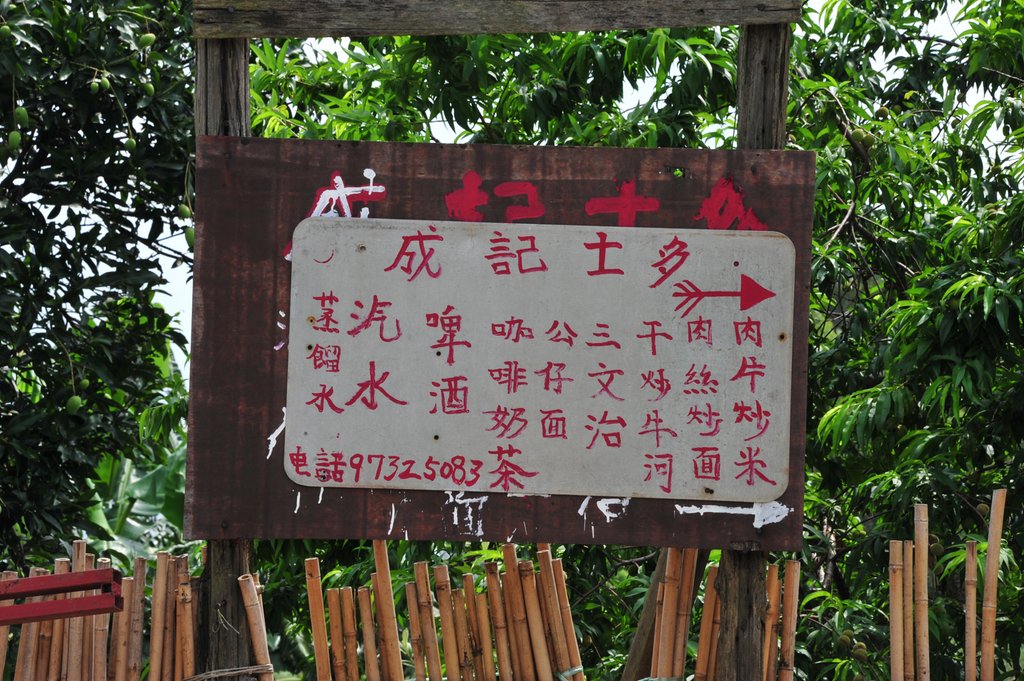 成記士多
肉片炒米
肉絲炒面
干炒牛河
三文治
公仔面
咖啡奶茶
啤酒
汽水
蒸餾水
电話97325083